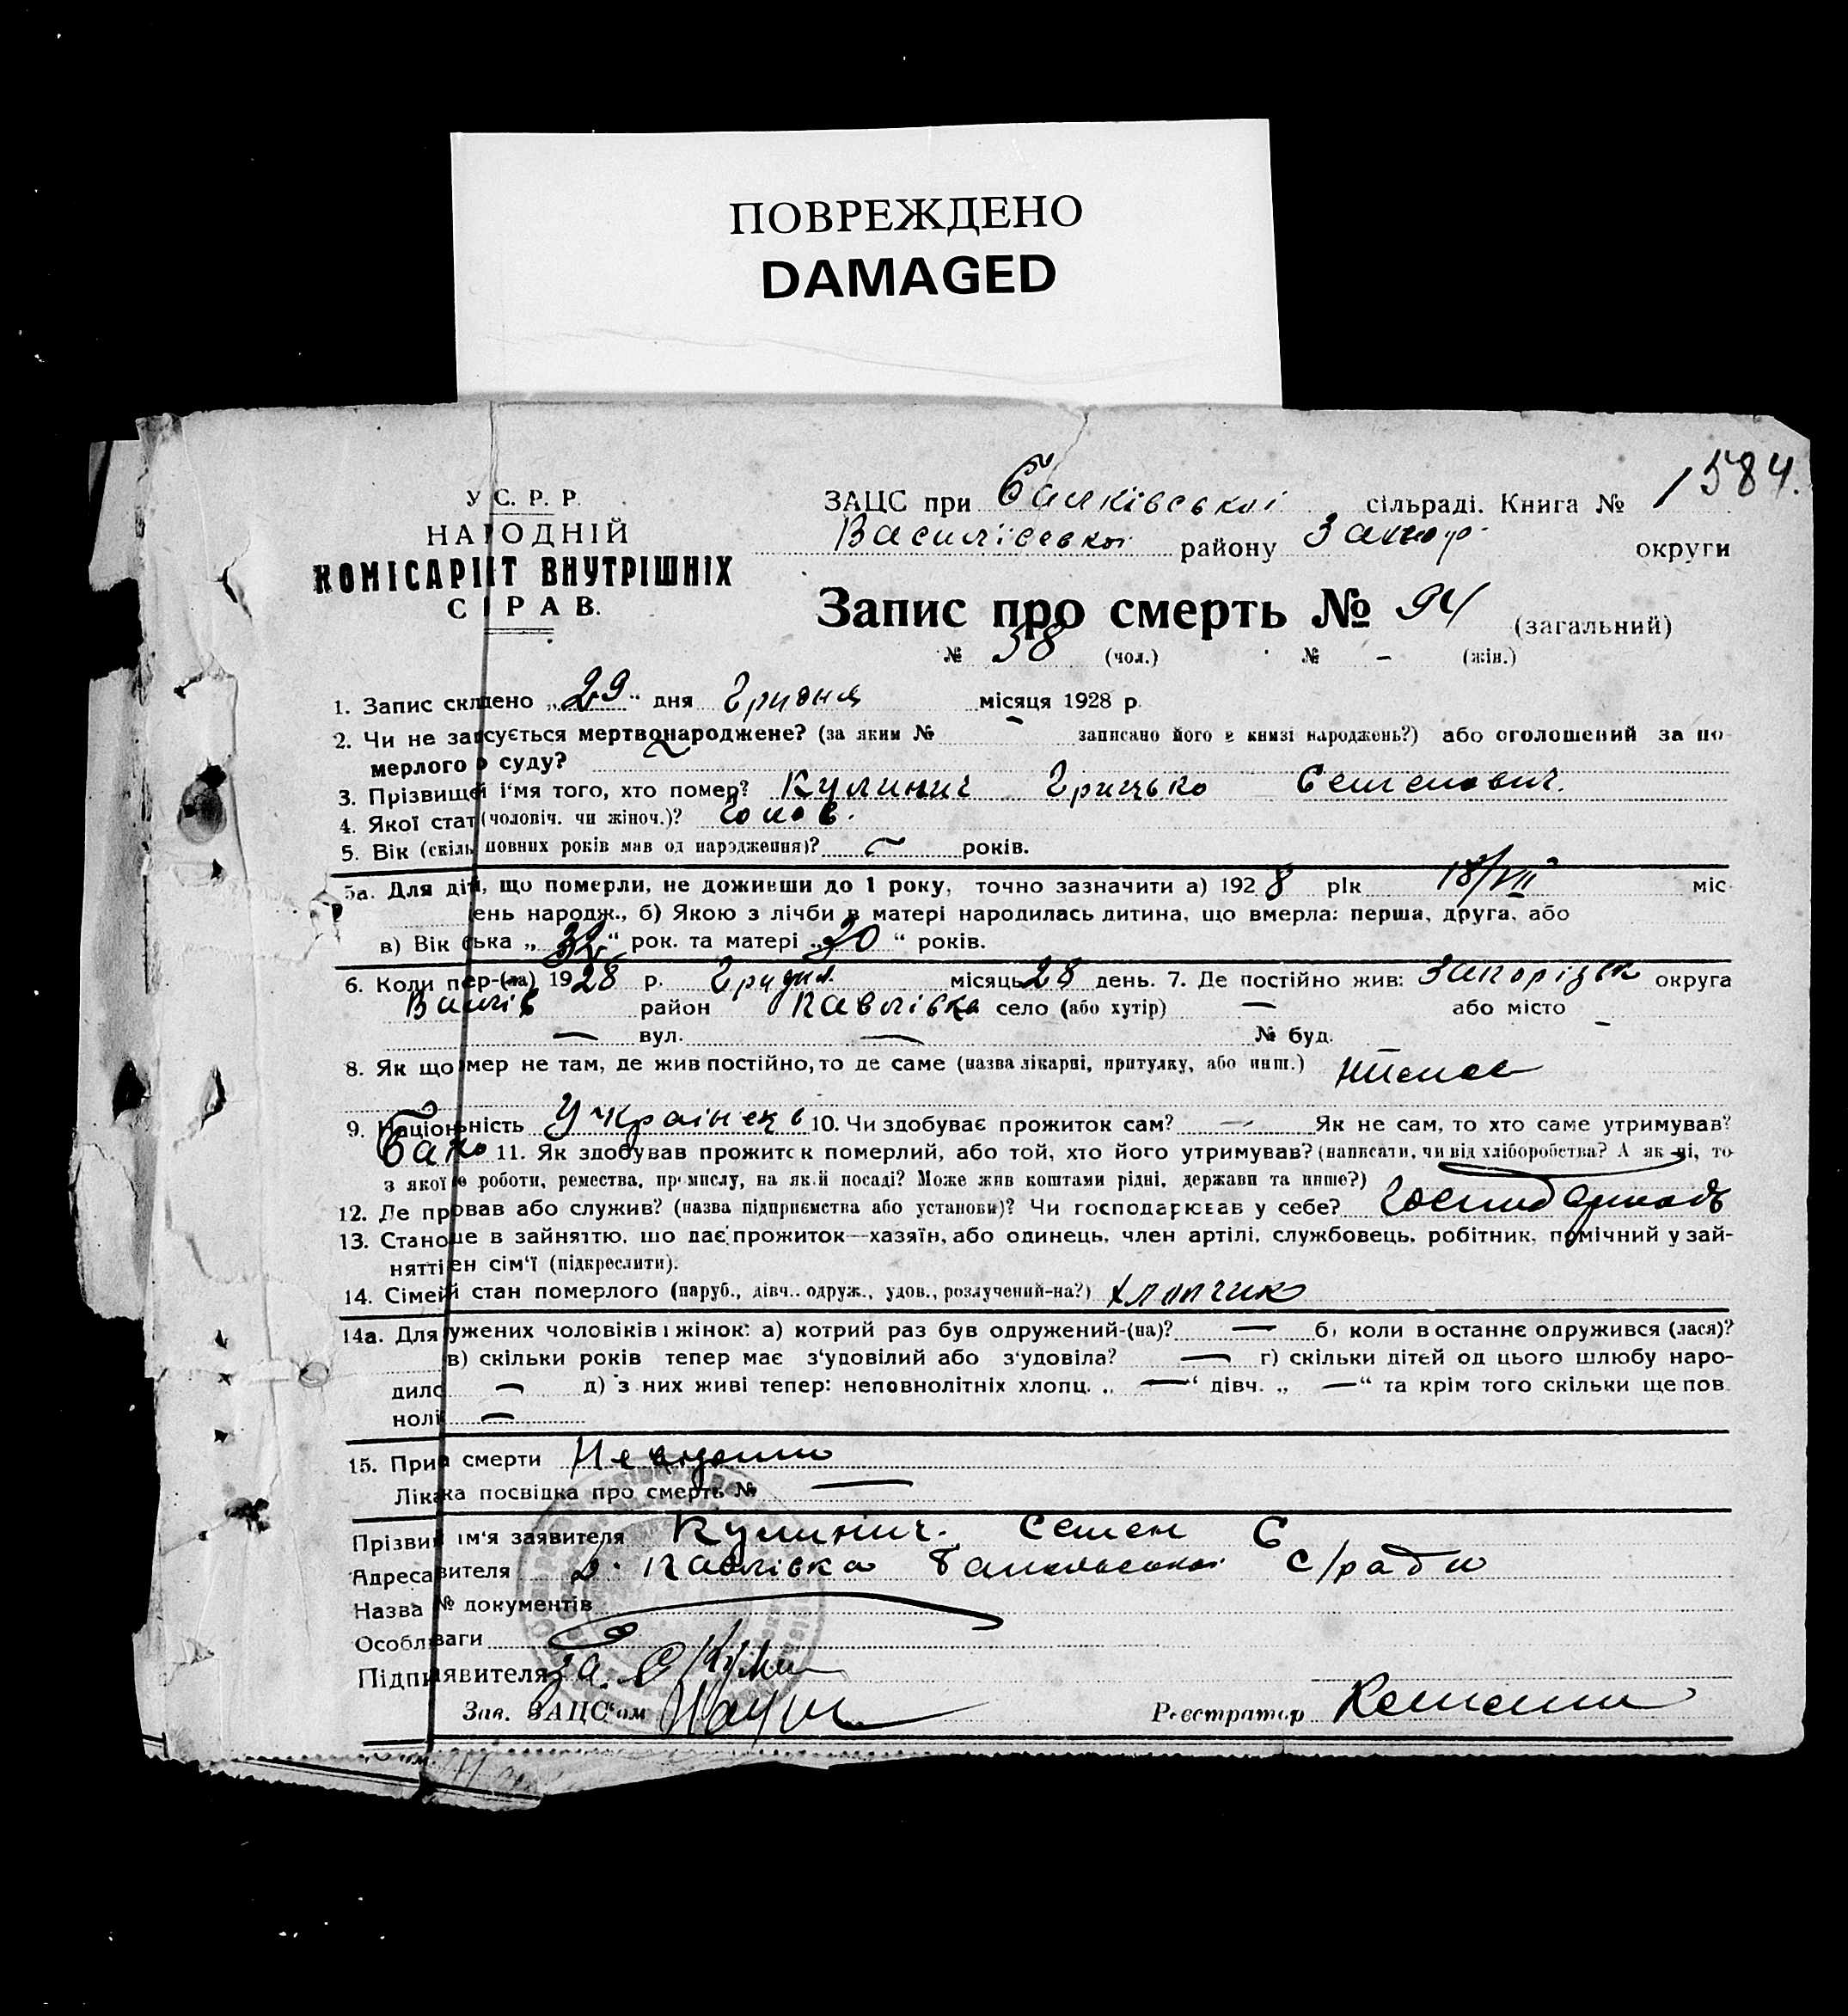 ПОВРЕЖДЕНО
DAMAGED
1584.
У С. Р. Р.
НАРОДНІЙ
КОМІСАРІЯТ ВНУТРІШНІХ
СПРАВ.
ЗАЦС при Балківської сільраді. Книга №
Василівської району Запор. округи
Запис про смерть № 94 (загальний)
№ 58 (чол.) № - (жін.)
1. Запис складено „29" дня Грудня місяця 1928 р.
2. Чи не записується мертвонароджене? (за яким № – записано його в книзі народжень?) або оголошений за по
мерлого по суду?
3. Прізвище й і'мя того, хто помер? Кулинич Грицько Семенович.
4. Якої стат (чоловіч. чи жіноч.)? Чолов.
5. Вік (скіль повних років мав од народження)? — років.
5а. Для дітей, що померли, не доживши до 1 року, точно зазначити а) 1928 рік 18/VII міс
ень народж., б) Якою з лічби в матері народилась дитина, що вмерла: перша, друга, або
в) Вік ька „32" рок. та матері „30" років.
6. Коли пер-(ла) 1928 р. Грудня місяць 28 день. 7. Де постійно жив: Запорізьк округа
Василів район Павлівка село (або хутір) — або місто –
— вул. — № буд.
8. Як що мер не там, де жив постійно, то де саме (назва лікарні, притулку, або инш.)
9. Національність Українець 10. Чи здобуває прожиток сам? — Як не сам, то хто саме утримував?
Батько 11. Як здобував прожиток померлий, або той, хто його утримував? (написати, чи від хліборобства? А як ні, то
з якої роботи, ремества, промислу, на якій посаді? Може жив коштами рідні, держави та инше?)
12. Де працював або служив? (назва підприємства або установи)? Чи господарював у себе?
13. Становище в зайняттю, що дає прожиток—хазяїн, або одинець, член артілі, службовець, робітник, помічний у зай-
нятті ен сім'ї (підкреслити).
14. Сімей й стан померлого (паруб., дівч.. одруж., удов., розлучений-на?) хлопчик
14а. Для ужених чоловіків і жінок: а) котрий раз був одружений-(на)? — б) коли в останнє одружився (лася)?
в) скільки років тепер має з'удовілий або з'удовіла? — г) скільки дітей од цього шлюбу наро-
дило — д) з них живі тепер: неповнолітніх хлопц. „—" дівч. „—" та крім того скільки ще пов
нолі —
15. При смерти Невідомо
Ліка ка посвідка про смерть № —
Прізви ім'я заявителя Кулинич. Семен С
Адреса вителя Павлівка с/ради
Назва № документів
Особл ваги
Підпи явителя за С Кули
Зав. ЗАЦС'ом
Реєстратор